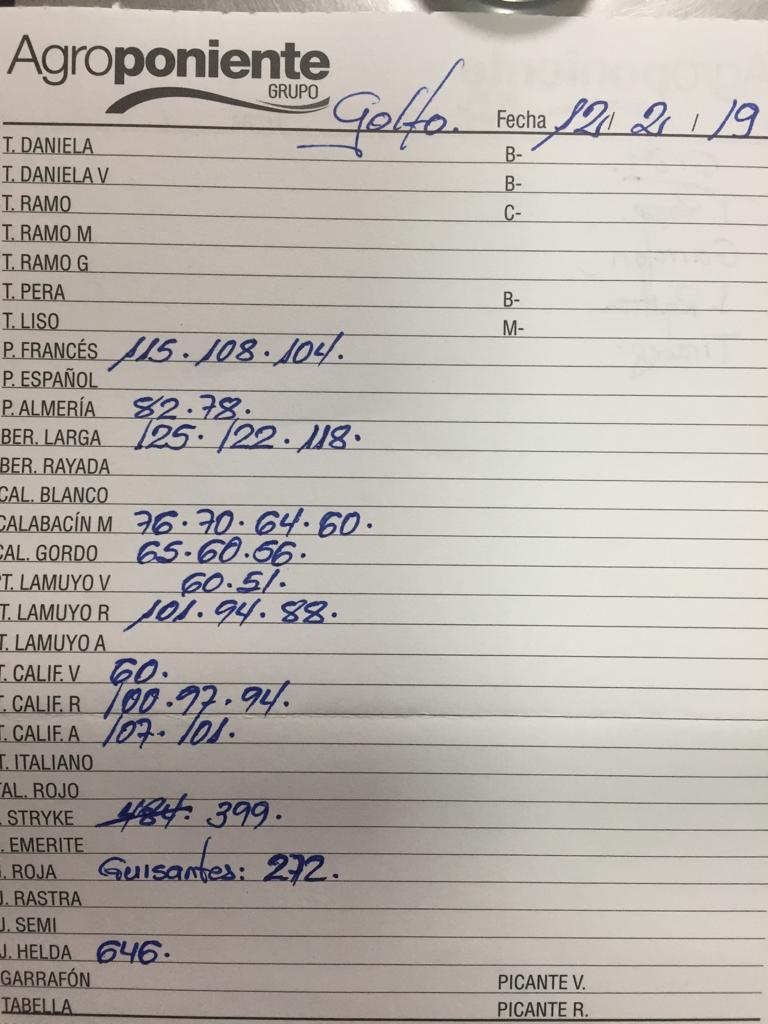 Agroponiente
GRUPO
Golfo. Fecha 12/ 2/ 19
T. DANIELA B-
T. DANIELA V B-
T. RAMO C-
T. RAMO M
T. RAMO G
T. PERA B-
T. LISO M-
P. FRANCÉS 115. 108. 104.
P. ESPAÑOL
P. ALMERÍA 82.78.
BER. LARGA 125. 122. 118.
BER. RAYADA
CAL. BLANCO
CALABACÍN M 76.70.64.60.
CAL. GORDO 65.60.56.
T. LAMUYO V 60.51.
T. LAMUYO R 101. 94. 88.
T. LAMUYO A
T. CALIF. V 60.
T. CALIF. R 100.97.94.
T. CALIF. A 107. 101.
T. ITALIANO
AL. ROJO
. STRYKE 484. 399.
. EMERITE
. ROJA Guisantes: 272.
J. RASTRA
J. SEMI
J. HELDA 646.
GARRAFÓN PICANTE V.
TABELLA PICANTE R.